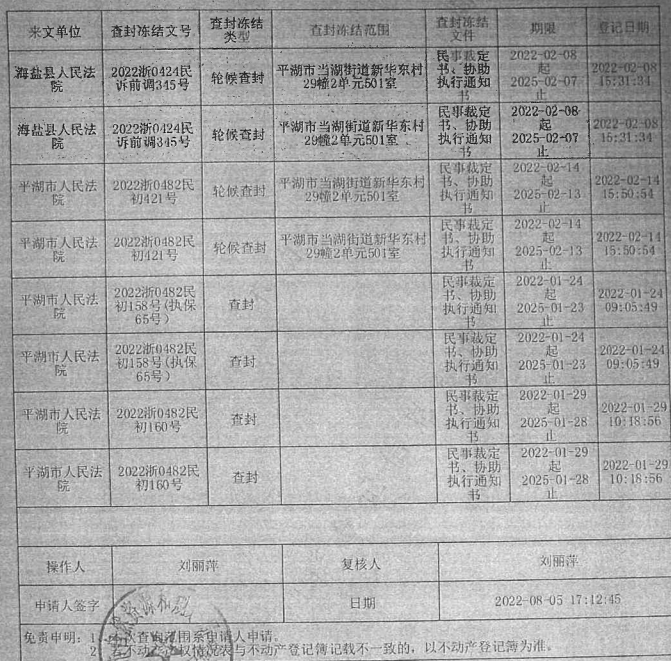 来文单位 查封冻结文号 查封冻结类型 查封冻结范围 查封冻结文件 期限 登记日期
海盐县人民法院 2022浙0424民诉前调345号 轮候查封 平湖市当湖街道新华东村29幢2单元501室 民事裁定书、协助执行通知书 2022-02-08起2025-02-07止 2022-02-08 15:31:34
海盐县人民法院 2022浙0424民诉前调345号 轮候查封 平湖市当湖街道新华东村29幢2单元501室 民事裁定书、协助执行通知书 2022-02-08起2025-02-07止 2022-02-08 15:31:34
平湖市人民法院 2022浙0482民初421号 轮候查封 平湖市当湖街道新华东村29幢2单元501室 民事裁定书、协助执行通知书 2022-02-14起2025-02-13止 2022-02-14 15:50:54
平湖市人民法院 2022浙0482民初421号 轮候查封 平湖市当湖街道新华东村29幢2单元501室 民事裁定书、协助执行通知书 2022-02-14起2025-02-13止 2022-02-14 15:50:54
平湖市人民法院 2022浙0482民初158号(执保65号) 查封 民事裁定书、协助执行通知书 2022-01-24起2025-01-23止 2022-01-24 09:05:49
平湖市人民法院 2022浙0482民初158号(执保65号) 查封 民事裁定书、协助执行通知书 2022-01-24起2025-01-23止 2022-01-24 09:05:49
平湖市人民法院 2022浙0482民初160号 查封 民事裁定书、协助执行通知书 2022-01-29起2025-01-28止 2022-01-29 10:18:56
平湖市人民法院 2022浙0482民初160号 查封 民事裁定书、协助执行通知书 2022-01-29起2025-01-28止 2022-01-29 10:18:56
操作人 刘丽萍 复核人 刘丽萍
申请人签字 日期 2022-08-05 17:12:45
免责申明：1 本次查询范围系申请人申请。
2 若不动产权情况表与不动产登记簿记载不一致的，以不动产登记簿为准。